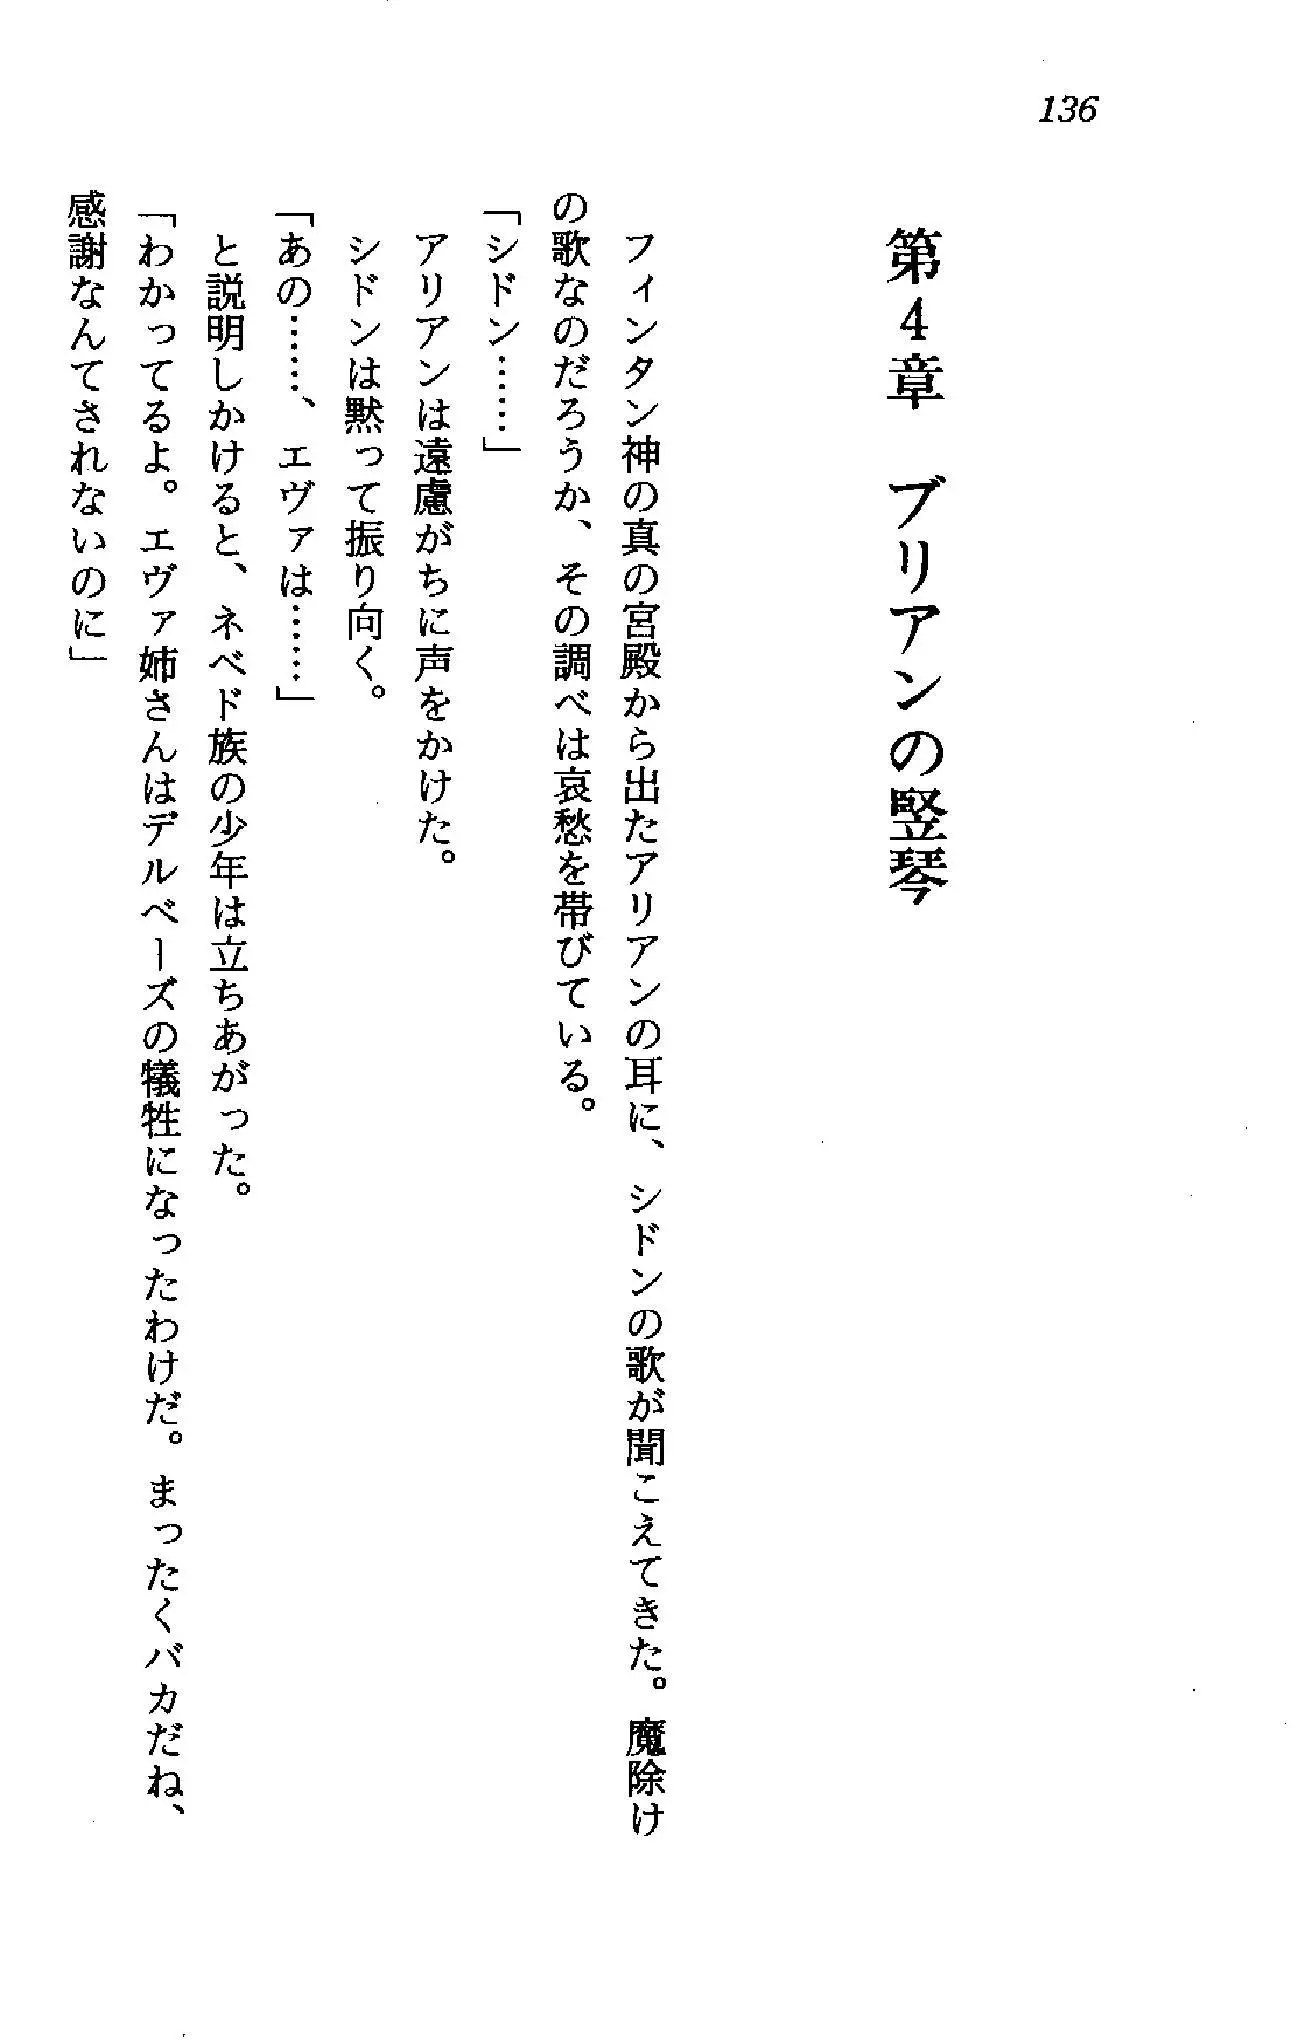 136
第4章　ブリアンの竪琴
　フィンタン神の真の宮殿から出たアリアンの耳に、シドンの歌が聞こえてきた。魔除け
の歌なのだろうか、その調べは哀愁を帯びている。
「シドン……」
　アリアンは遠慮がちに声をかけた。
　シドンは黙って振り向く。
「あの……、エヴァは……」
　と説明しかけると、ネベド族の少年は立ちあがった。
「わかってるよ。エヴァ姉さんはデルベーズの犠牲になったわけだ。まったくバカだね、
感謝なんてされないのに」